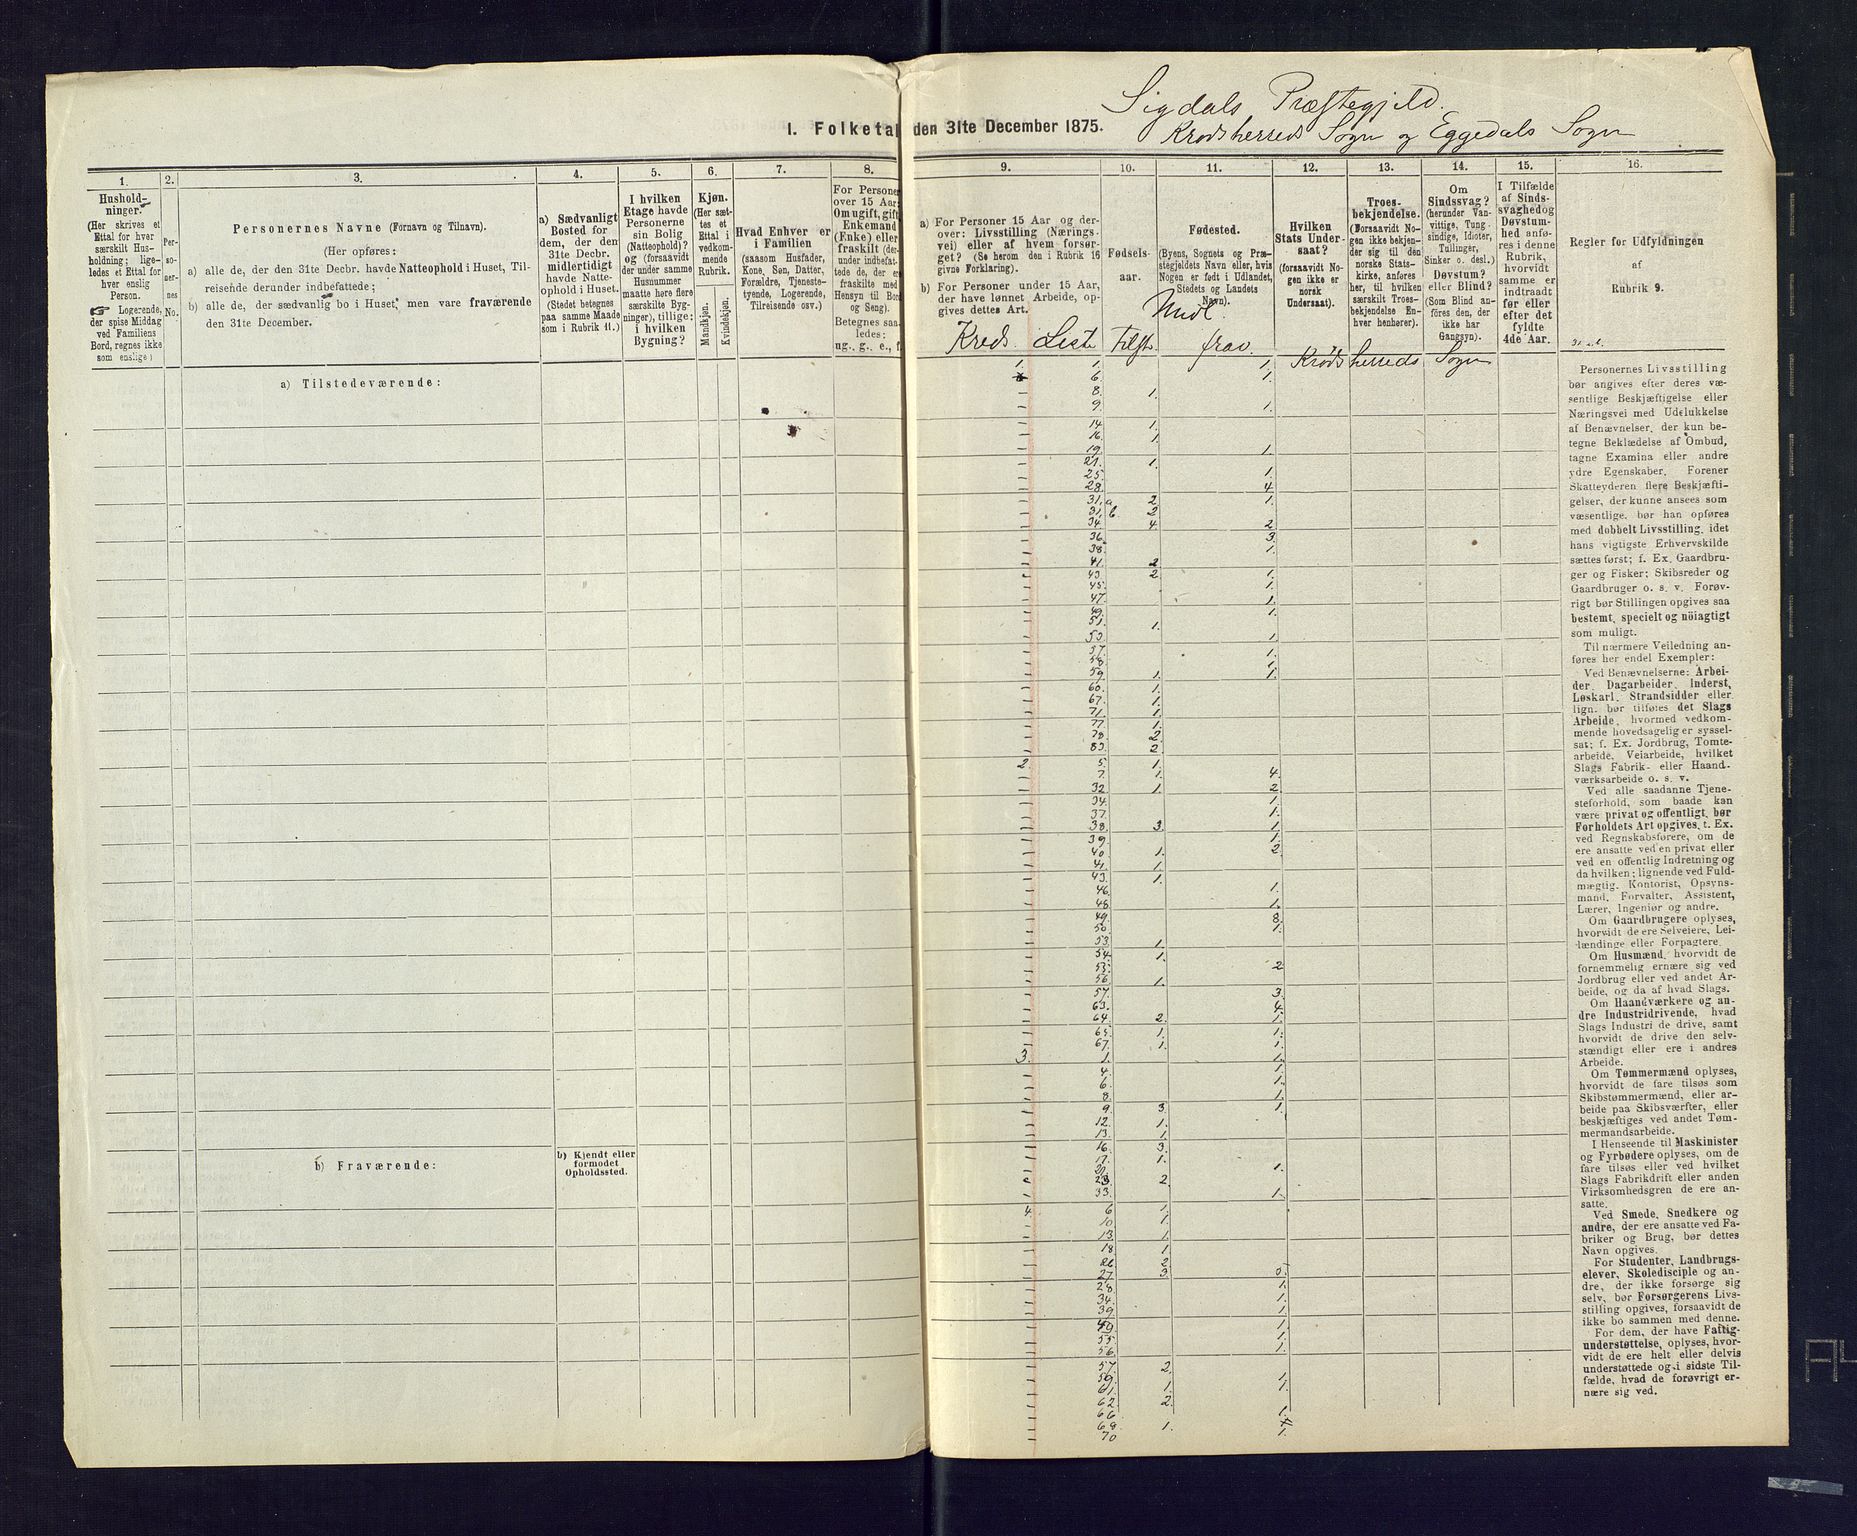 Sigdals Præstegjeld.
Krødsherreds Sogn og Eggedals Sogn
1. Folketal den 31te December 1875.
1.
Hushold-
ninger.
(Her skrives et
Ettal for hver
særskilt Hus-
holdning; lige-
ledes et Ettal for
hver enslig
Person.
☞ Logerende,
der spise Middag
ved Familiens
Bord, regnes ikke
som enslige.)
2.
Per-
so-
ner-
nes
No.
3.
Personernes Navne (Fornavn og Tilnavn).
(Her opføres:
a) alle de, der den 31te Decbr. havde Natteophold i Huset, Til-
reisende derunder indbefattede;
b) alle de, der sædvanlig bo i Huset, men vare fraværende
den 31te December.
4.
a) Sædvanligt
Bosted for
dem, der den
31te Decbr.
midlertidigt
havde Natte-
ophold i Huset.
(Stedet betegnes
paa samme Maade
som i Rubrik 11.)
5.
I hvilken
Etage havde
Personerne
sin Bolig
(Natteophold)?
og (forsaavidt
der under samme
Husnummer
maatte høre flere
særskilte Byg-
ninger), tillige:
i hvilken
Bygning?
6.
Kjøn.
(Her sæt-
tes et
Ettal i
vedkom-
mende
Rubrik.
Mandkjøn.
Kvindekjøn.
7.
Hvad Enhver er
i Familien
(saasom Husfader,
Kone, Søn, Datter,
Forældre, Tjeneste-
tyende, Logerende,
Tilreisende osv.)
8.
For Personer
over 15 Aar:
Om ugift, gift,
Enkemand
(Enke) eller
fraskilt (der-
under indbefat-
tede de, der ere
fraskilte med
Hensyn til Bord
og Seng).
Betegnes saa-
ledes:
ug., g., e., f.
9.
a) For Personer 15 Aar og der-
over: Livsstilling (Nærings-
vei) eller af hvem forsør-
get? (Se herom den i Rubrik 16
givne Forklaring).
b) For Personer under 15 Aar,
der have lønnet Arbeide, op-
gives dettes Art.
10.
Fødsels-
aar.
11.
Fødested.
(Byens, Sognets og Præ-
stegjeldets Navn eller, hvis
Nogen er født i Udlandet,
Stedets og Landets
Navn).
12.
Hvilken
Stats Under-
saat?
(forsaavidt No-
gen ikke er
norsk
Undersaat).
13.
Troes-
bekjendelse.
(Forsaavidt No-
gen ikke bekjen-
der sig til den
norske Stats-
kirke, anføres
her, til hvilken
særskilt Troes-
bekjendelse En-
hver henhører).
14.
Om
Sindssvag?
(herunder Van-
vittige, Tung-
sindige, Idioter,
Tullinger,
Sinker o. desl.)
Døvstum?
eller Blind?
(Som Blind an-
føres den, der
ikke har
Gangsyn).
15.
I Tilfælde
af Sinds-
svaghed og
Døvstum-
hed anfø-
res i denne
Rubrik,
hvorvidt
samme er
indtraadt
før eller
efter det
fyldte
4de Aar.
16.
Regler for Udfyldningen
af
Rubrik 9.
Midl.
Kreds. Liste Tilst. frav.
Krødsherreds Sogn
a) Tilstedeværende:
1. 1. 1.
6. 1.
8. 1.
9. 1.
14. 1.
16. 1.
19. 1.
21. 1.
25. 1.
28. 4.
31. a 2 1.
31. b. 2
34. 4. 2
36. 3.
38. 1.
41. 2
43. 2 1.
45. 1.
47. 1.
49. 1.
51. 1.
53. 1.
57. 1.
58. 1.
59. 1. 1.
60. 1.
67. 1.
71. 1.
77. 1.
78. 2
83. 2
2. 5. 1.
7. 1. 4.
32 1. 2
34. 1.
37. 1.
38. 3. 1.
39. 1.
40 1. 2
41. 1.
43. 1.
46. 1.
48. 1.
49. 8.
50. 1.
53. 1.
54. 1.
55. 2
56. 1.
57. 3.
63. 4.
64. 2. 1.
65. 1. 1.
67. 1. 1.
3. 1. 1.
4. 1.
6. 1.
8. 1.
9. 3. 1.
12. 1.
13. 1.
16. 3.
17. 1.
21. 1.
23. 2.
33. 1.
b) Fraværende:
b) Kjendt eller
formodet
Opholdssted.
4. 6 1.
10 1.
13. 1.
18. 1.
2
27. 3.
28. 1.
34. 1.
39. 1.
1.
55 1.
56. 1.
57. 2.
59. 1.
61. 1. 1.
62 2.
66 1.
1.
70 1.
Personernes Livsstilling
bør angives efter deres væ-
sentlige Beskjæftigelse eller
Næringsvei med Udelukkelse
af Benævnelser, der kun be-
tegne Beklædelse af Ombud,
tagne Examina eller andre
ydre Egenskaber. Forener
Skatteyderen flere Beskjæfti-
gelser, der kunne ansees som
væsentlige, bør han opføres
med dobbelt Livsstilling, idet
hans vigtigste Erhvervskilde
sættes først; f. Ex. Gaardbru-
ger og Fisker; Skibsreder og
Gaardbruger o. s. v. Forøv-
rigt bør Stillingen opgives saa
bestemt, specielt og nöiagtigt
som muligt.
Til nærmere Veiledning an-
føres her endel Exempler:
Ved Benævnelserne: Arbei-
der, Dagarbeider, Inderst,
Løskarl, Strandsidder eller
lign. bør tilføies det Slags
Arbeide, hvormed vedkom-
mende hovedsagelig er syssel-
sat; f. Ex. Jordbrug, Tomte-
arbeide, Veiarbeide, hvilket
Slags Fabrik- eller Haand-
værksarbeide o. s. v.
Ved alle saadanne Tjene-
steforhold, som baade kan
være privat og offentligt, bør
Forholdets Art opgives, t. Ex.
ved Regnskabsførere, om de
ere ansatte ved en privat eller
ved en offentlig Indretning og
da hvilken; lignende ved Fuld-
mægtig, Kontorist, Opsyns-
mand, Forvalter, Assistent,
Lærer, Ingeniør og andre.
Om Gaardbrugere oplyses,
hvorvidt de ere Selveiere, Lei-
lændinge eller Forpagtere.
Om Husmænd, hvorvidt de
fornemmelig ernære sig ved
Jordbrug eller ved andet Ar-
beide, og da af hvad Slags.
Om Haandværkere og an-
dre Industridrivende, hvad
Slags Industri de drive, samt
hvorvidt de drive den selv-
stændigt eller ere i andres
Arbeide.
Om Tømmermænd oplyses,
hvorvidt de fare tilsøs som
Skibstømmermænd, eller ar-
beide paa Skibsværfter, eller
beskjæftiges ved andet Tøm-
mermandsarbeide.
I Henseende til Maskinister
og Fyrbødere oplyses, om de
fare tilsøs eller ved hvilket
Slags Fabrikdrift eller anden
Virksomhedsgren de ere an-
satte.
Ved Smede, Snedkere og
andre, der ere ansatte ved Fa-
briker og Brug, bør dettes
Navn opgives.
For Studenter, Landbrugs-
elever, Skoledisciple og an-
dre, der ikke forsørge sig
selv, bør Forsørgerens Livs-
stilling opgives, forsaavidt de
ikke bo sammen med denne.
For dem, der have Fattig-
understøttelse, oplyses, hvor-
vidt de ere helt eller delvis
understøttede og i sidste Til-
fælde, hvad de forøvrigt er-
nære sig ved.